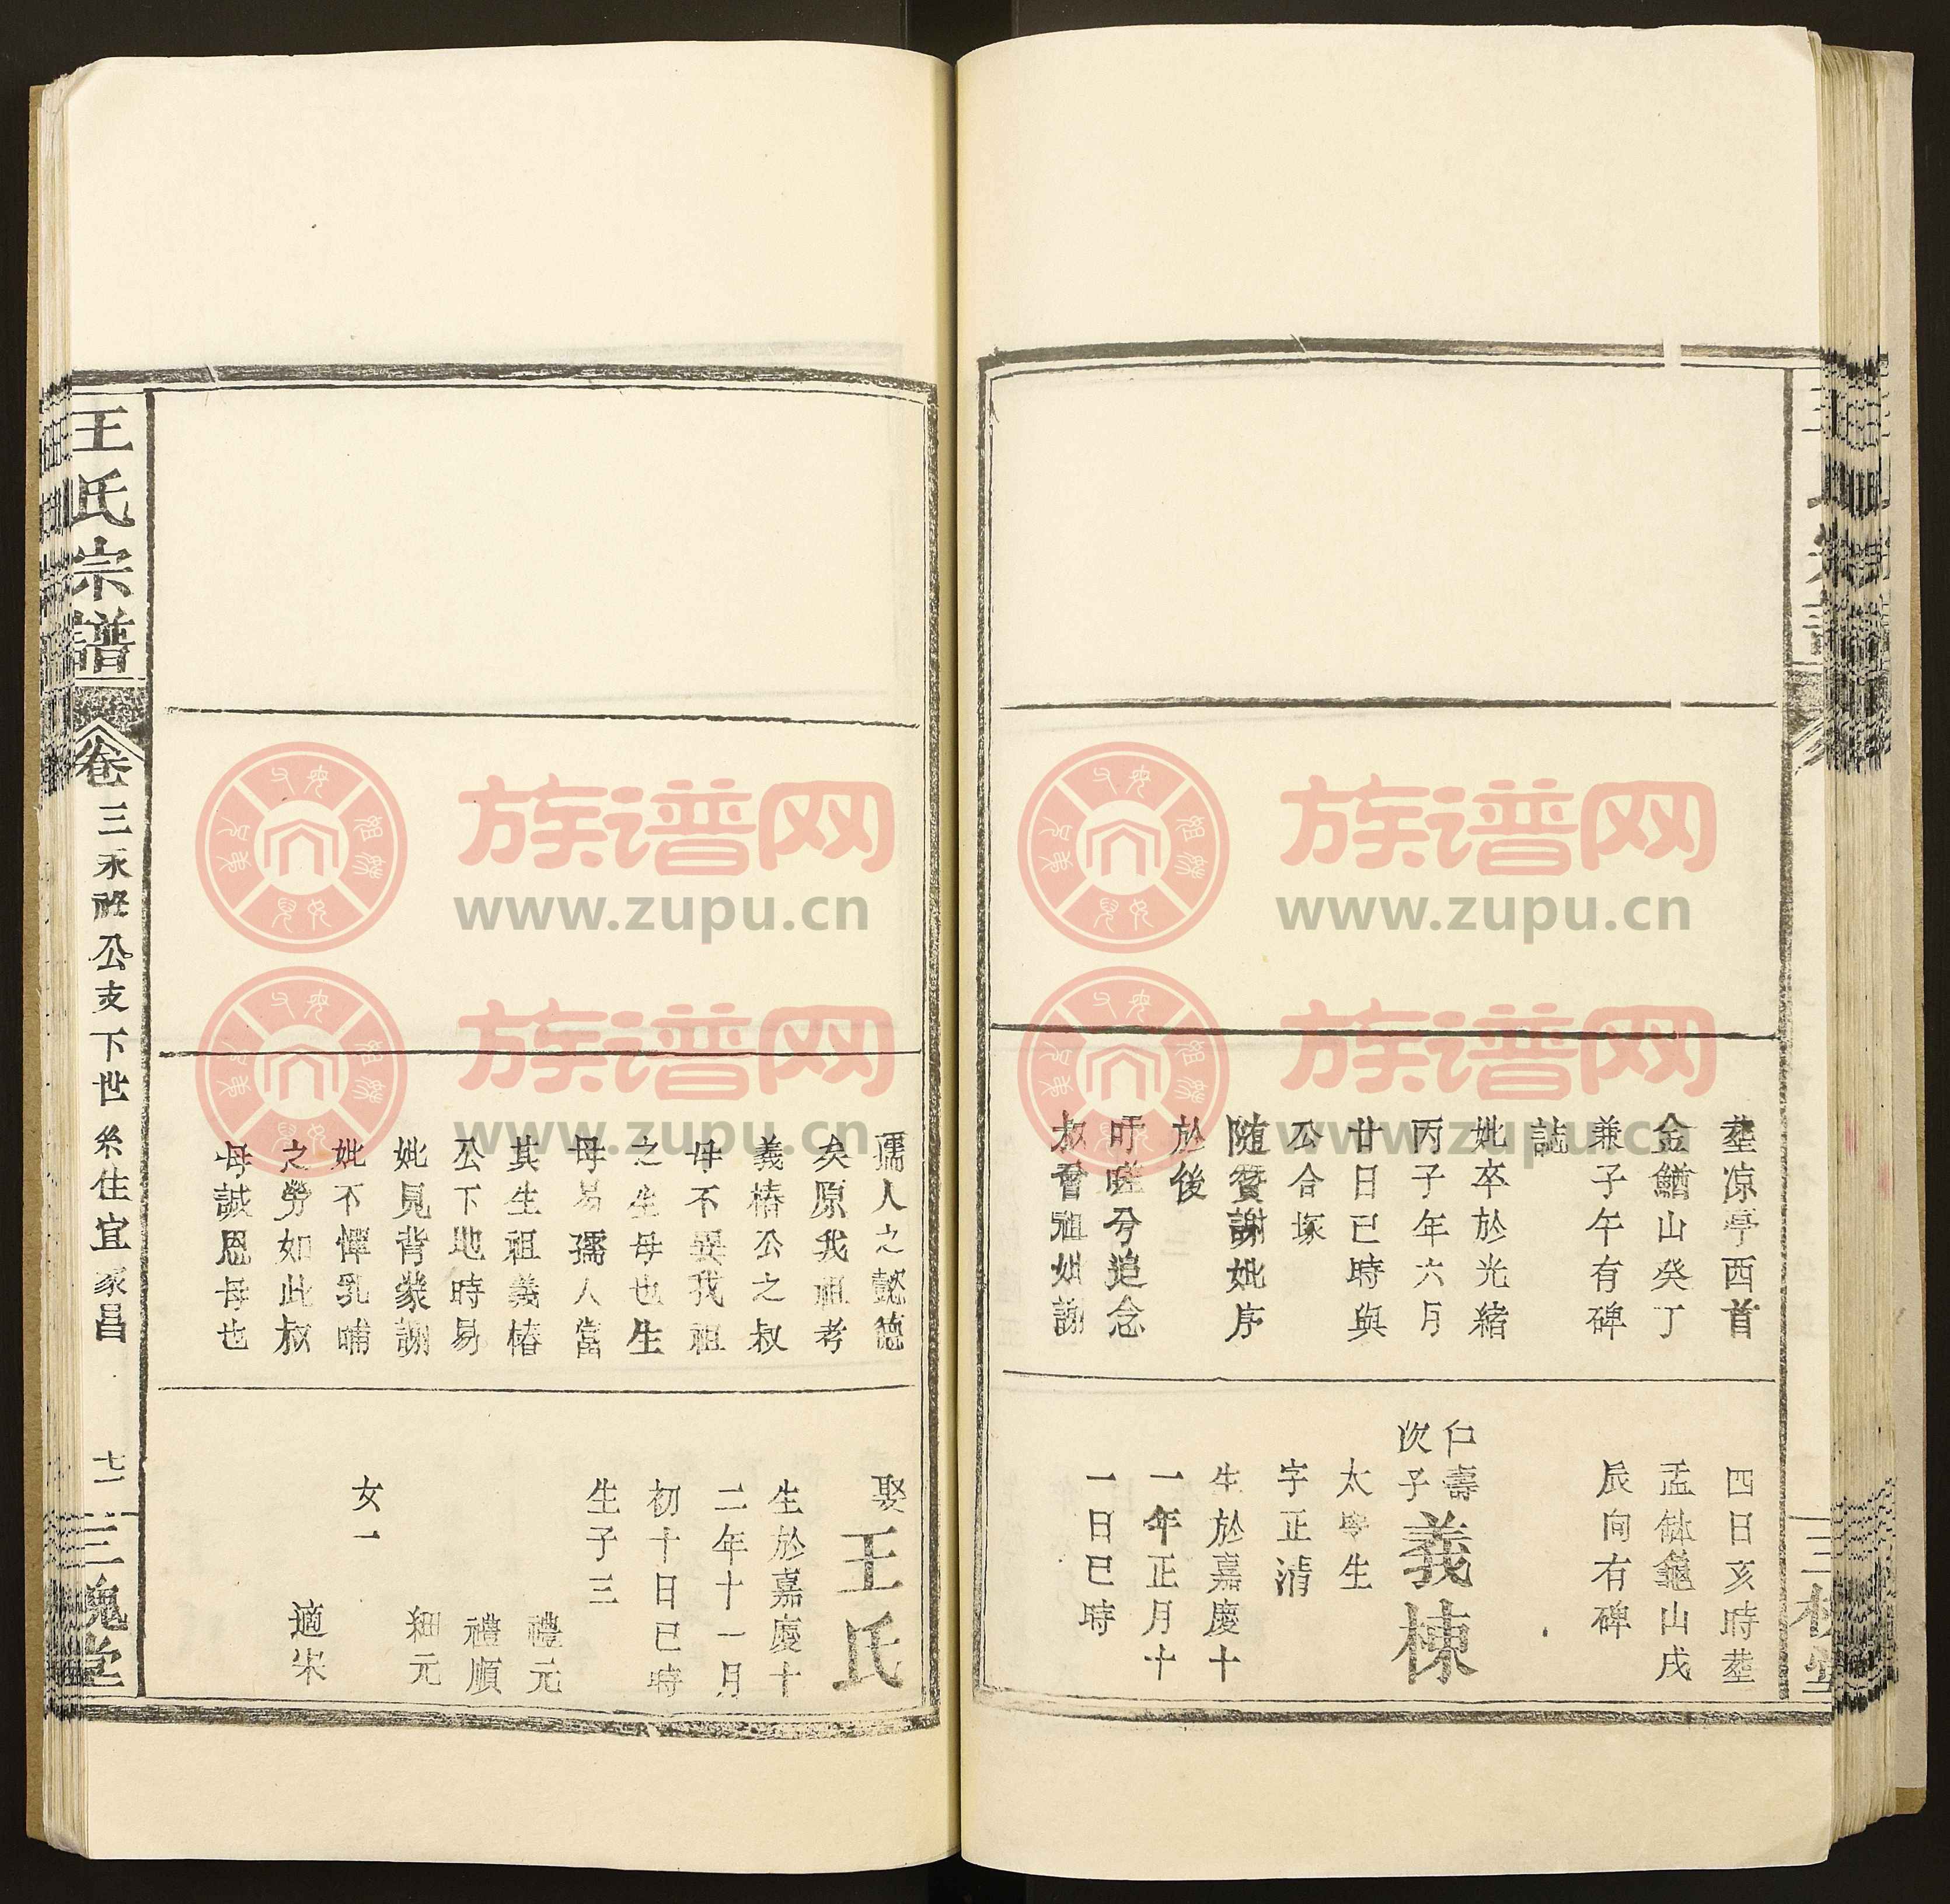 塟凉亭西首
金鰌山癸丁
兼子午有碑
誌
妣卒於光緒
丙子年六月
廿日巳時與
公合塚
随贊謝妣序
於後
吁嗟兮追念
叔曾祖妣謝
四日亥時塟
孟缽龜山戌
辰向有碑
仁壽
次子
義棟
太學生
字正清
生於嘉慶十
一年正月十
一日巳時
孺人之懿德
矣原我祖考
義椿公之叔
母不異我祖
之生母也生
母易孺人當
其生祖義椿
公下地時易
妣見背蒙謝
妣不憚乳哺
之勞如此叔
母誠恩母也
娶王氏
生於嘉慶十
二年十一月
初十日巳時
生子三
禮元
禮順
細元
女一
適宋
王氏宗譜
卷三
永祿公支下世系住宜家昌
七一
三槐堂
族谱网
www.zupu.cn
族谱网
www.zupu.cn
族谱网
www.zupu.cn
族谱网
www.zupu.cn